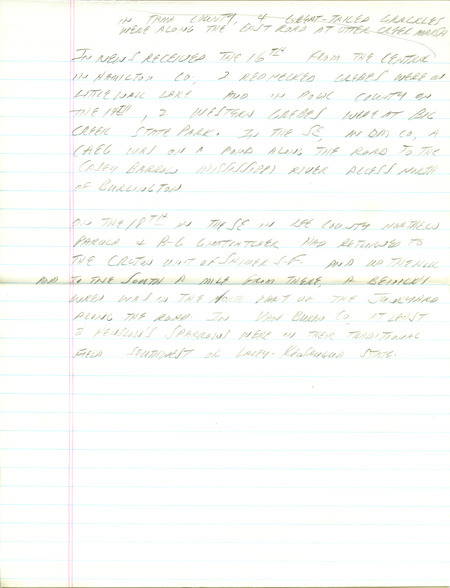 IN TAMA COUNTY, 4 GREAT-TAILED GRACKLES
WERE ALONG THE EAST ROAD AT OTTER CREEK MARSH
IN NEWS RECEIVED THE 16TH FROM THE CENTER
IN HAMILTON CO, 2 REDNECKED GREBES WERE ON
LITTLE WALL LAKE AND IN POLK COUNTY ON
THE 17TH, 2 WESTERN GREBES WERE AT BIG
CREEK STATE PARK. IN THE SE, IN DM CO, A
CAEG WAS ON A POND ALONG THE ROAD TO THE
CASEY BARROW MISSISSIPPI RIVER ACCESS NORTH
OF BURLINGTON
ON THE 18TH IN THE SE IN LEE COUNTY NORTHERN
PARULA & B-G GNATCATCHER HAD RETURNED TO
THE CROTON UNIT OF SHIMEK S.F. AND
AND TO THE SOUTH A MILE FROM THERE, A BEWICK'S
WREN WAS IN THE PART OF THE JUNKYARD
ALONG THE ROAD. IN VAN BUREN CO, AT LEAST
3 HENSLOW'S SPARROWS WERE IN THEIR TRADITIONAL
FIELD SOUTHWEST OF LACEY-KEOSAUQUA STATE.